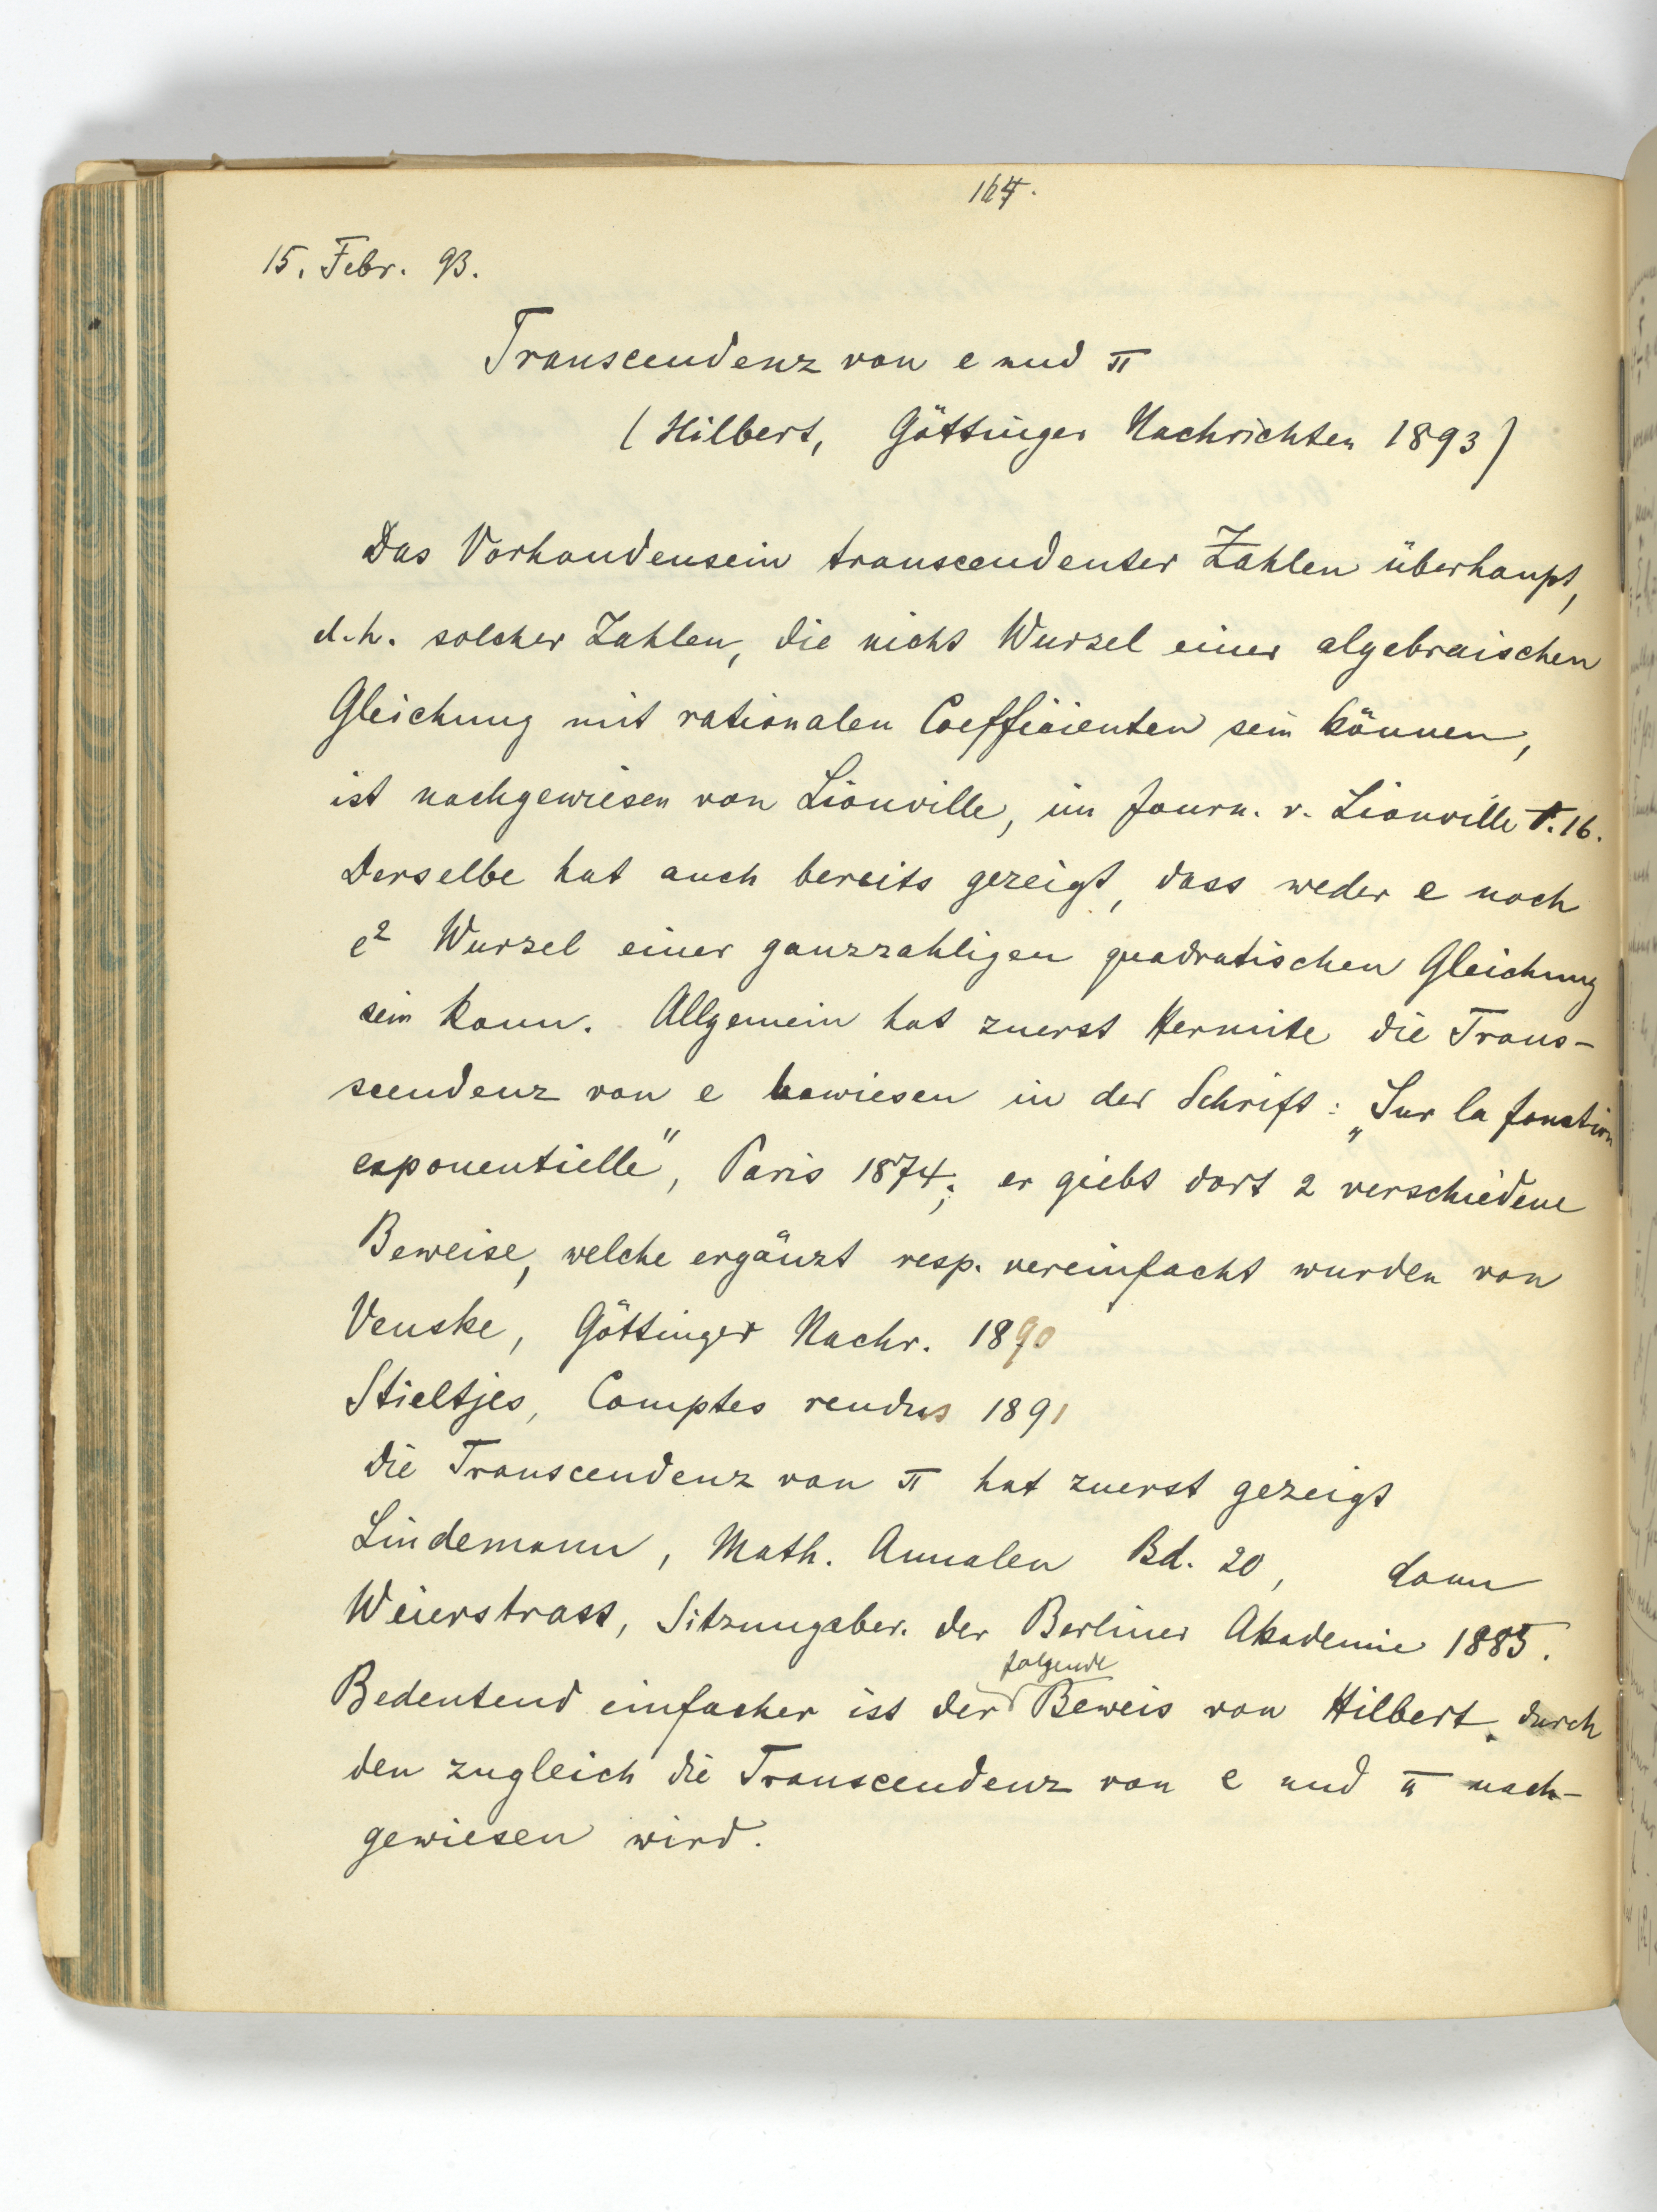 164.
15. Febr. 93.
Transcendenz von e und π
(Hilbert, Göttinger Nachrichten 1893)
Das Vorhandensein transcendenter Zahlen überhaupt,
d.h. solcher Zahlen, die nicht Wurzel einer algebraischen
Gleichung mit rationalen Coefficienten sein können,
ist nachgewiesen von Liouville, im Journ. v. Liouville T. 16.
Derselbe hat auch bereits gezeigt, dass weder e noch
e² Wurzel einer ganzzahligen quadratischen Gleichung
sein kann. Allgemein hat zuerst Hermite die Trans-
scendenz von e bewiesen in der Schrift: „Sur la fonction
exponentielle", Paris 1874; er giebt dort 2 verschiedene
Beweise, welche ergänzt resp. vereinfacht wurden von
Venske, Göttinger Nachr. 1890
Stieltjes, Comptes rendus 1891
Die Transcendenz von π hat zuerst gezeigt
Lindemann, Math. Annalen Bd. 20, dann
Weierstrass, Sitzungsber. der Berliner Akademie 1885.
Bedeutend einfacher ist der folgende Beweis von Hilbert, durch
den zugleich die Transcendenz von e und π nach-
gewiesen wird.